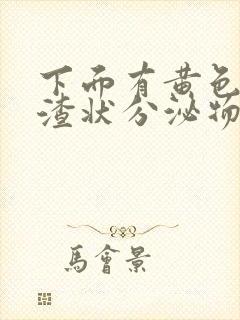 下面有黄色
渣状分泌物
馬會景